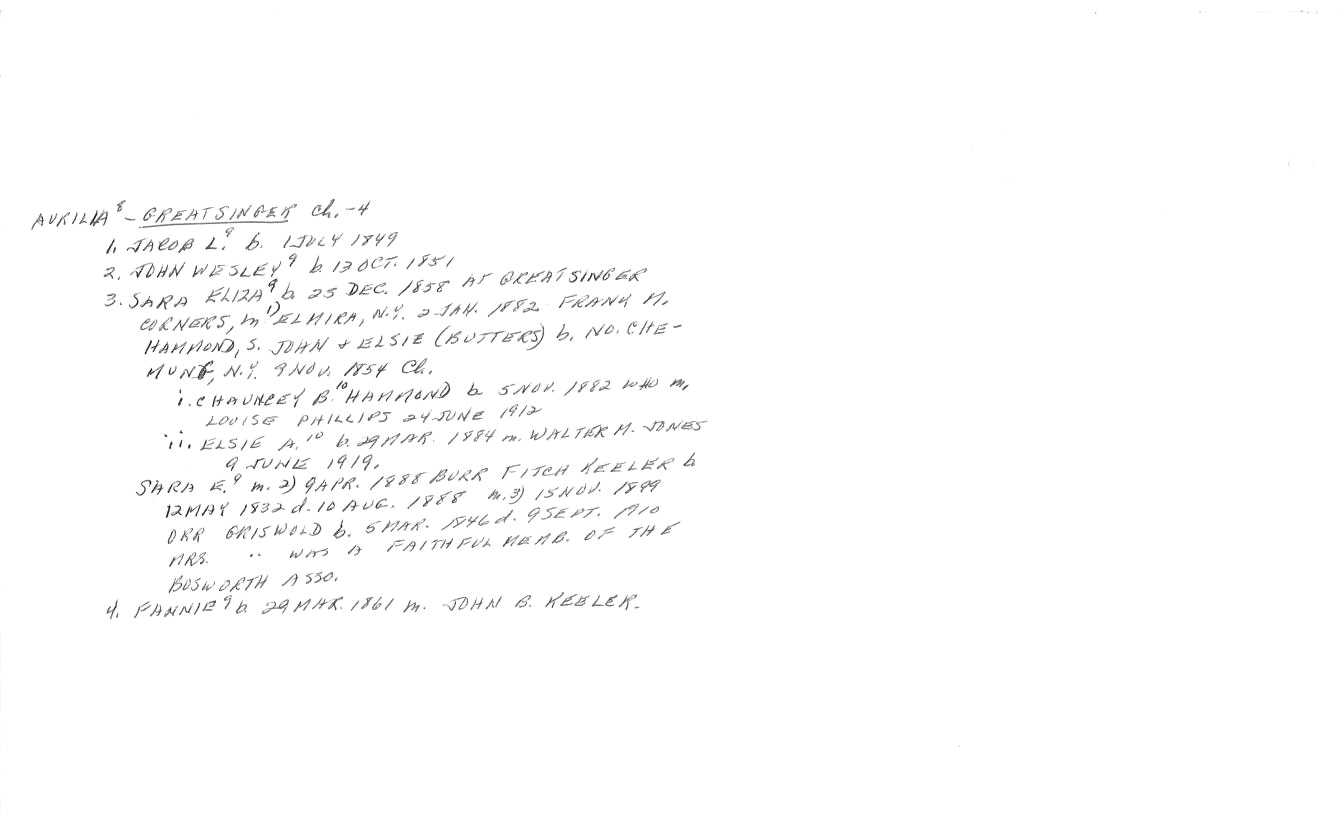 AURILIA⁸ - GREATSINGER Ch. - 4
1. JACOB L.⁹ b. 1 JULY 1849
2. JOHN WESLEY⁹ b. 13 OCT. 1851
3. SARA ELIZA⁹ b. 25 DEC. 1858 AT GREATSINGER
CORNERS, m 1) ELMIRA, N.Y. 2 JAN. 1882 FRANK M.
HAMMOND, S. JOHN + ELSIE (BUTTERS) b. NO. CHE-
MUNG, N.Y. 9 NOV. 1854 Ch.
i. CHAUNCEY B.¹⁰ HAMMOND b 5 NOV. 1882 WHO m.
LOUISE PHILLIPS 24 JUNE 1912
ii. ELSIE A.¹⁰ b. 29 MAR. 1884 m. WALTER M. JONES
9 JUNE 1919.
SARA E.⁹ m. 2) 9 APR. 1888 BURR FITCH KEELER b
12 MAY 1832 d. 10 AUG. 1888 m. 3) 15 NOV. 1899
ORR GRISWOLD b. 5 MAR. 1846 d. 9 SEPT. 1910
MRS. " WAS A FAITHFUL MEMB. OF THE
BOSWORTH ASSO.
4. FANNIE⁹ b. 29 MAR. 1861 m. JOHN B. KEELER.